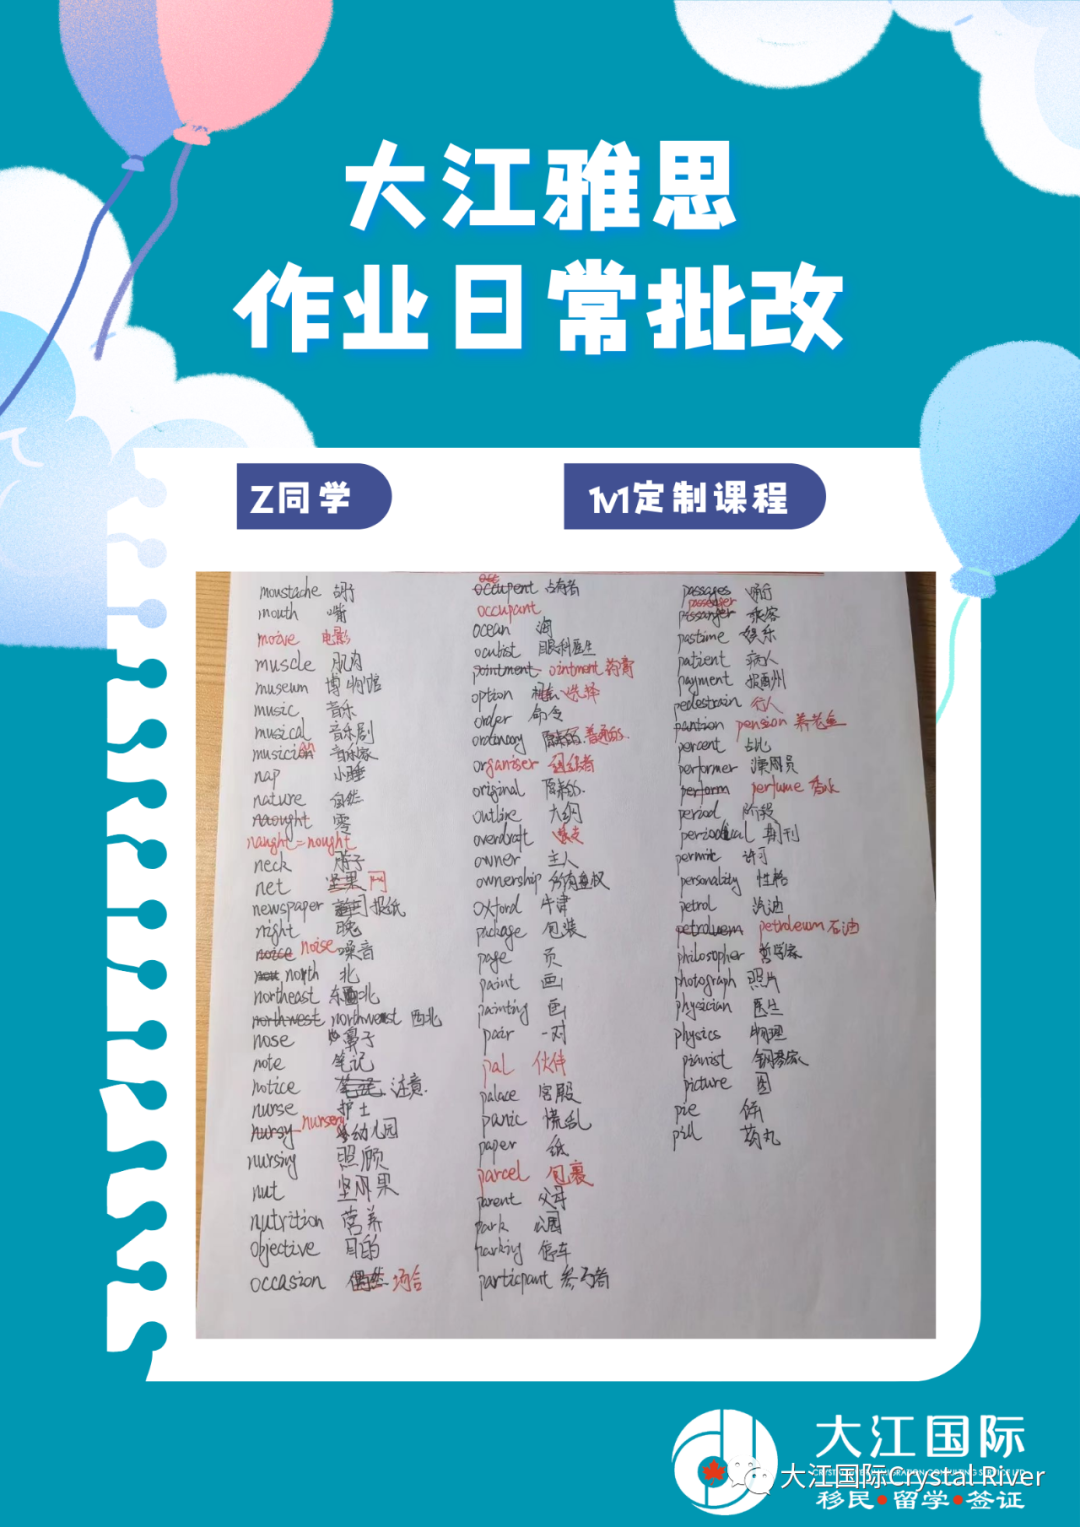 大江雅思
作业日常批改
Z同学
1v1定制课程
moustache 胡子
mouth 嘴
moive 电影
muscle 肌肉
museum 博物馆
music 音乐
musical 音乐剧
musician 音乐家
nap 小睡
nature 自然
nought 零
naught = nought
neck 脖子
net 坚果 网
newspaper 报纸
night 晚
noice noise 噪音
north 北
northeast 东北
northwest northwest 西北
nose 鼻子
note 笔记
notice 笔记 注意
nurse 护士
nursy nursery 幼儿园
nursing 照顾
nut 坚果
nutrition 营养
objective 目的
occasion 偶然 场合
occupent 占有者
occupant
ocean 海
oculist 眼科医生
pointment ointment 药膏
option 选择
order 命令
ordonary 普通的
organiser 组织者
original 原始的
outline 大纲
overdraft 透支
owner 主人
ownership 所有权
oxford 牛津
package 包装
page 页
paint 画
painting 画
pair 一对
pal 伙伴
palace 宫殿
panic 慌乱
paper 纸
parcel 包裹
parent 父母
park 公园
parking 停车
participant 参与者
passages
passenger
pissanger 乘客
pastime 娱乐
patient 病人
payment
pedestrain 行人
pantion pension 养老金
percent 占比
performer 演员
perform perfume 香水
period 阶段
periodical 期刊
permit 许可
personality 性格
petrol 汽油
petroluem petroleum 石油
philosopher 哲学家
photograph 照片
physician 医生
physics 物理
pianist 钢琴家
picture 图
pie
pill 药丸
大江国际
大江国际Crystal River
移民·留学·签证